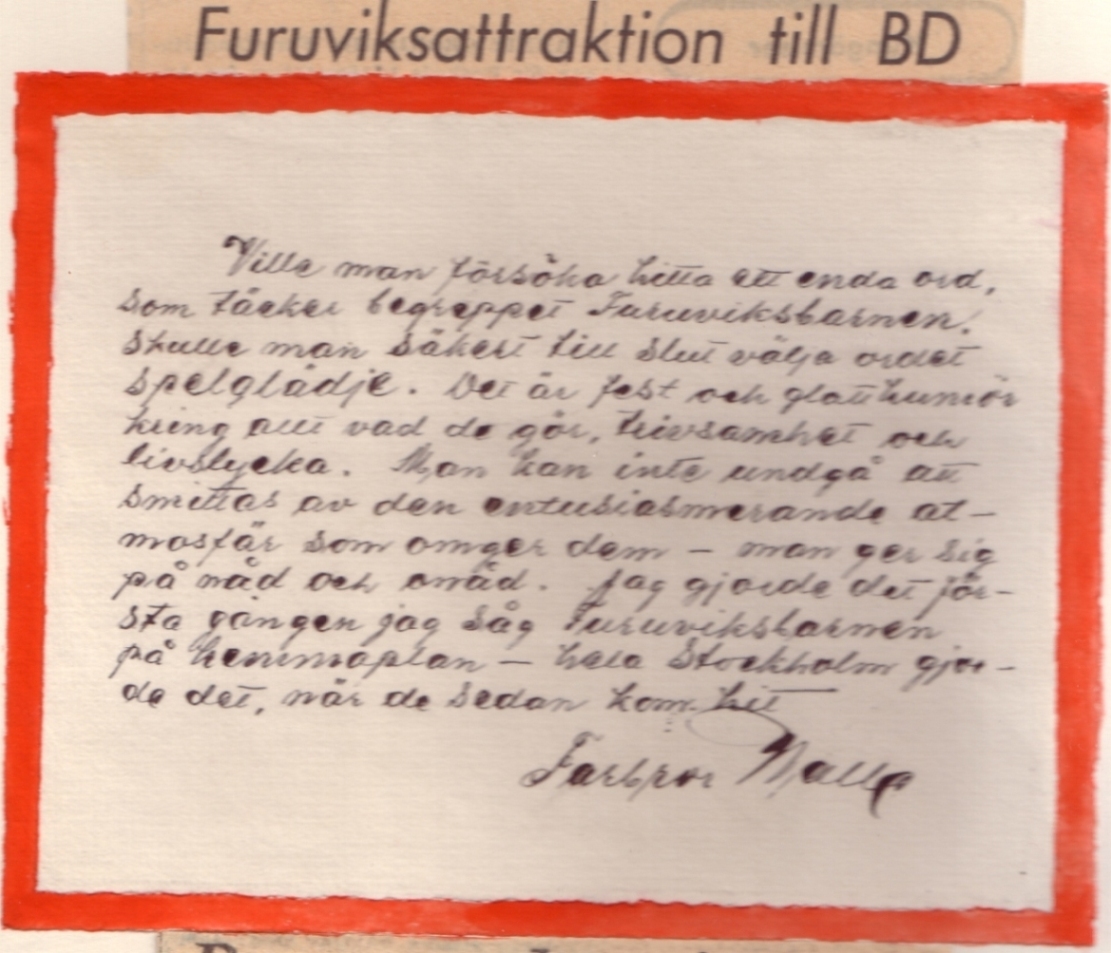 Furuviksattraktion till BD
Ville man försöka hitta ett enda ord,
som täcker begreppet Furuviksbarnen,
skulle man säkert till slut välja ordet
spelglädje. Det är fest och glatt humör
kring allt vad de gör, trivsamhet och
livslycka. Man kan inte undgå att
smittas av den entusiasmerande at-
mosfär som omger dem – man ger sig
på nåd och onåd. Jag gjorde det för-
sta gången jag såg Furuviksbarnen
på hemmaplan – hela Stockholm gjor-
de det, när de sedan kom hit
Farbror Malle